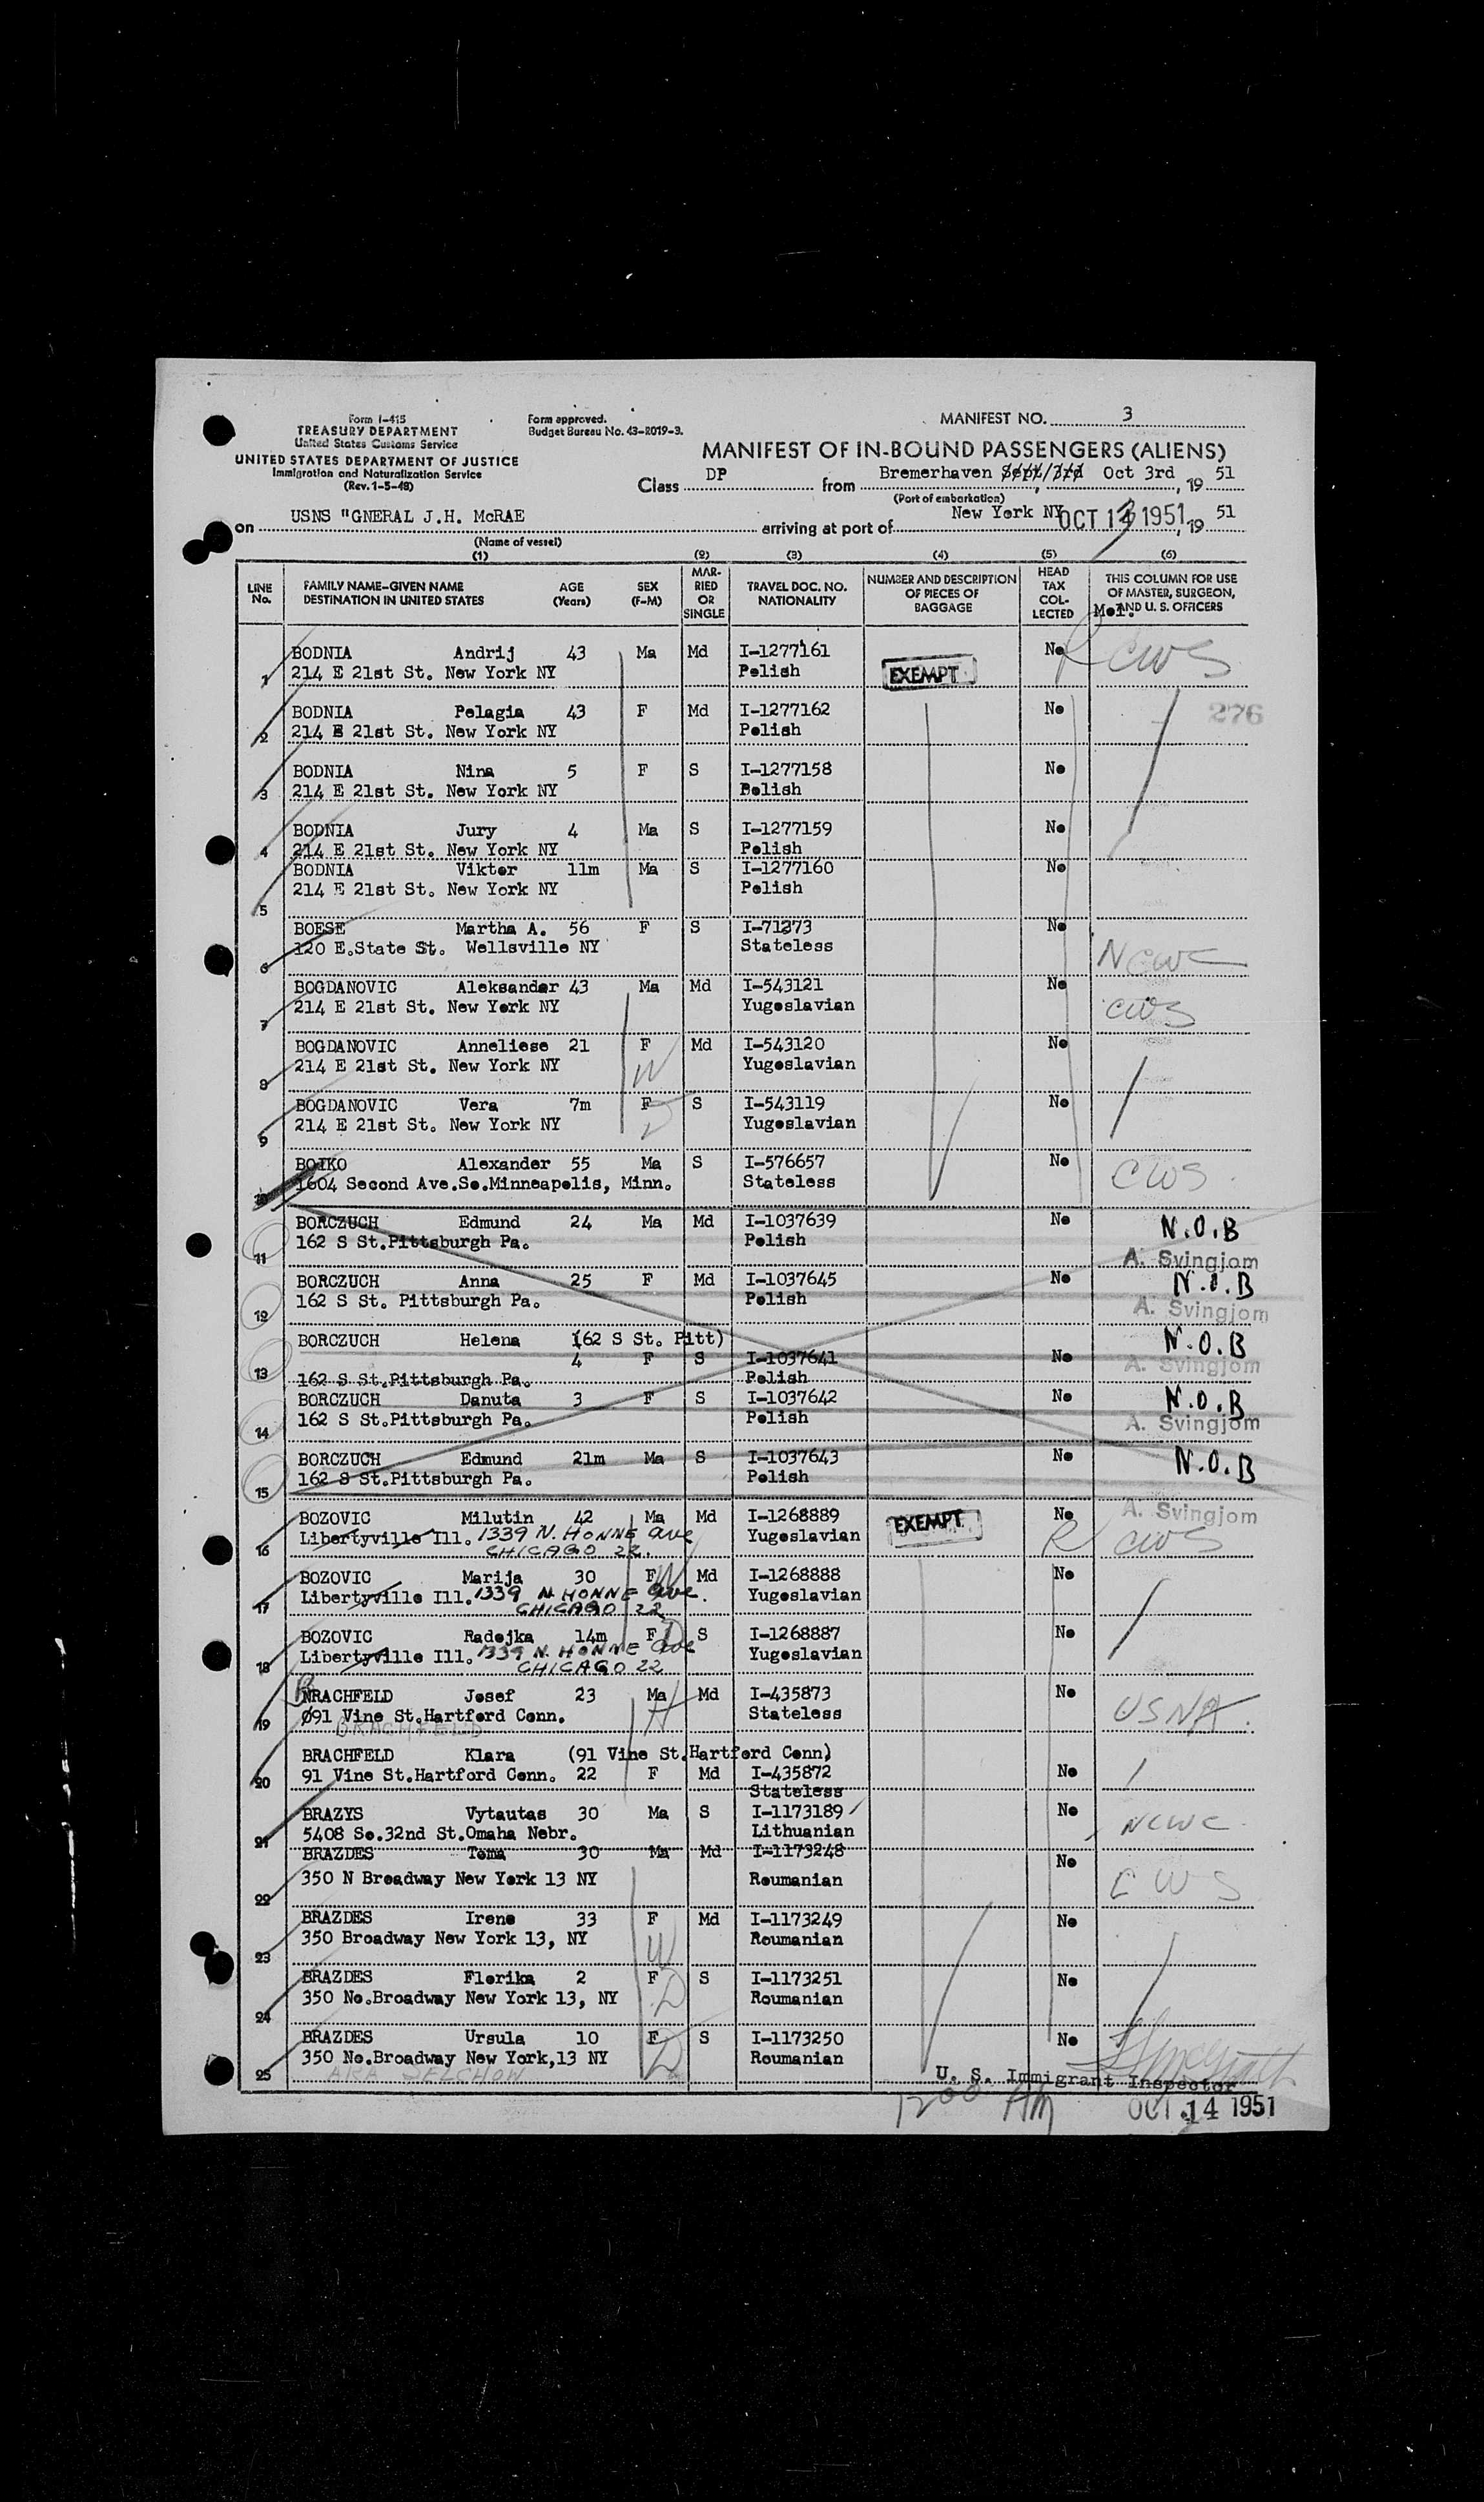 Form I-415
TREASURY DEPARTMENT
United States Customs Service
UNITED STATES DEPARTMENT OF JUSTICE
Immigration and Naturalization Service
(Rev. 1-5-48)
Form approved.
Budget Bureau No. 43-R019-3.
MANIFEST NO. 3
MANIFEST OF IN-BOUND PASSENGERS (ALIENS)
Class DP from Bremerhaven Oct 3rd, 19 51
(Port of embarkation)
on USNS "GNERAL J.H. McRAE arriving at port of New York NY OCT 13 1951, 19 51
(Name of vessel)
(1) (2) (3) (4) (5) (6)
LINE No. FAMILY NAME-GIVEN NAME DESTINATION IN UNITED STATES AGE (Years) SEX (F-M) MARRIED OR SINGLE TRAVEL DOC. NO. NATIONALITY NUMBER AND DESCRIPTION OF PIECES OF BAGGAGE HEAD TAX COLLECTED THIS COLUMN FOR USE OF MASTER, SURGEON, AND U. S. OFFICERS
1 BODNIA Andrij 43 Ma Md I-1277161 No CWS
214 E 21st St. New York NY Polish EXEMPT
2 BODNIA Pelagia 43 F Md I-1277162 No 276
214 E 21st St. New York NY Polish
3 BODNIA Nina 5 F S I-1277158 No
214 E 21st St. New York NY Polish
4 BODNIA Jury 4 Ma S I-1277159 No
214 E 21st St. New York NY Polish
5 BODNIA Viktor 11m Ma S I-1277160 No
214 E 21st St. New York NY Polish
6 BOESE Martha A. 56 F S I-71273 No
120 E.State St. Wellsville NY Stateless NCWC
7 BOGDANOVIC Aleksander 43 Ma Md I-543121 No
214 E 21st St. New York NY Yugoslavian CWS
8 BOGDANOVIC Anneliese 21 F Md I-543120 No
214 E 21st St. New York NY W Yugoslavian
9 BOGDANOVIC Vera 7m F S I-543119 No
214 E 21st St. New York NY D Yugoslavian
10 BOJKO Alexander 55 Ma S I-576657 No
1604 Second Ave.So.Minneapolis, Minn. Stateless CWS
11 BORCZUCH Edmund 24 Ma Md I-1037639 No N.O.B
162 S St.Pittsburgh Pa. Polish A. Svingjom
12 BORCZUCH Anna 25 F Md I-1037645 No N.O.B
162 S St. Pittsburgh Pa. Polish A. Svingjom
13 BORCZUCH Helena (62 S St. Pitt) N.O.B
4 F S I-1037641 No A. Svingjom
162 S St.Pittsburgh Pa. Polish
14 BORCZUCH Danuta 3 F S I-1037642 No N.O.B
162 S St.Pittsburgh Pa. Polish A. Svingjom
15 BORCZUCH Edmund 21m Ma S I-1037643 No N.O.B
162 S St.Pittsburgh Pa. Polish
16 BOZOVIC Milutin 42 Ma Md I-1268889 No A. Svingjom
Libertyville Ill. 1339 N. HONNE Ave Yugoslavian EXEMPT R CWS
CHICAGO 22.
17 BOZOVIC Marija 30 F Md I-1268888 No
Libertyville Ill. 1339 N. HONNE Ave. Yugoslavian
CHICAGO 22
18 BOZOVIC Radojka 14m F D S I-1268887 No
Libertyville Ill. 1339 N. HONNE Ave Yugoslavian
CHICAGO 22
19 BRACHFELD Josef 23 Ma Md I-435873 No
91 Vine St.Hartford Conn. H Stateless USNA
BRACHFELD
20 BRACHFELD Klara (91 Vine St.Hartford Conn)
91 Vine St.Hartford Conn. 22 F Md I-435872 No
Stateless
21 BRAZYS Vytautas 30 Ma S I-1173189 No
5408 So.32nd St.Omaha Nebr. Lithuanian NCWC
22 BRAZDES Toma 30 Ma Md I-1173248 No
350 N Broadway New York 13 NY Roumanian CWS
23 BRAZDES Irene 33 F Md I-1173249 No
350 Broadway New York 13, NY W Roumanian
24 BRAZDES Florika 2 F S I-1173251 No
350 No.Broadway New York 13, NY D Roumanian
25 BRAZDES Ursula 10 F S I-1173250 No
350 No.Broadway New York,13 NY D Roumanian
AKA SELCHOW
U. S. Immigrant Inspector
1200 AM OCT 14 1951